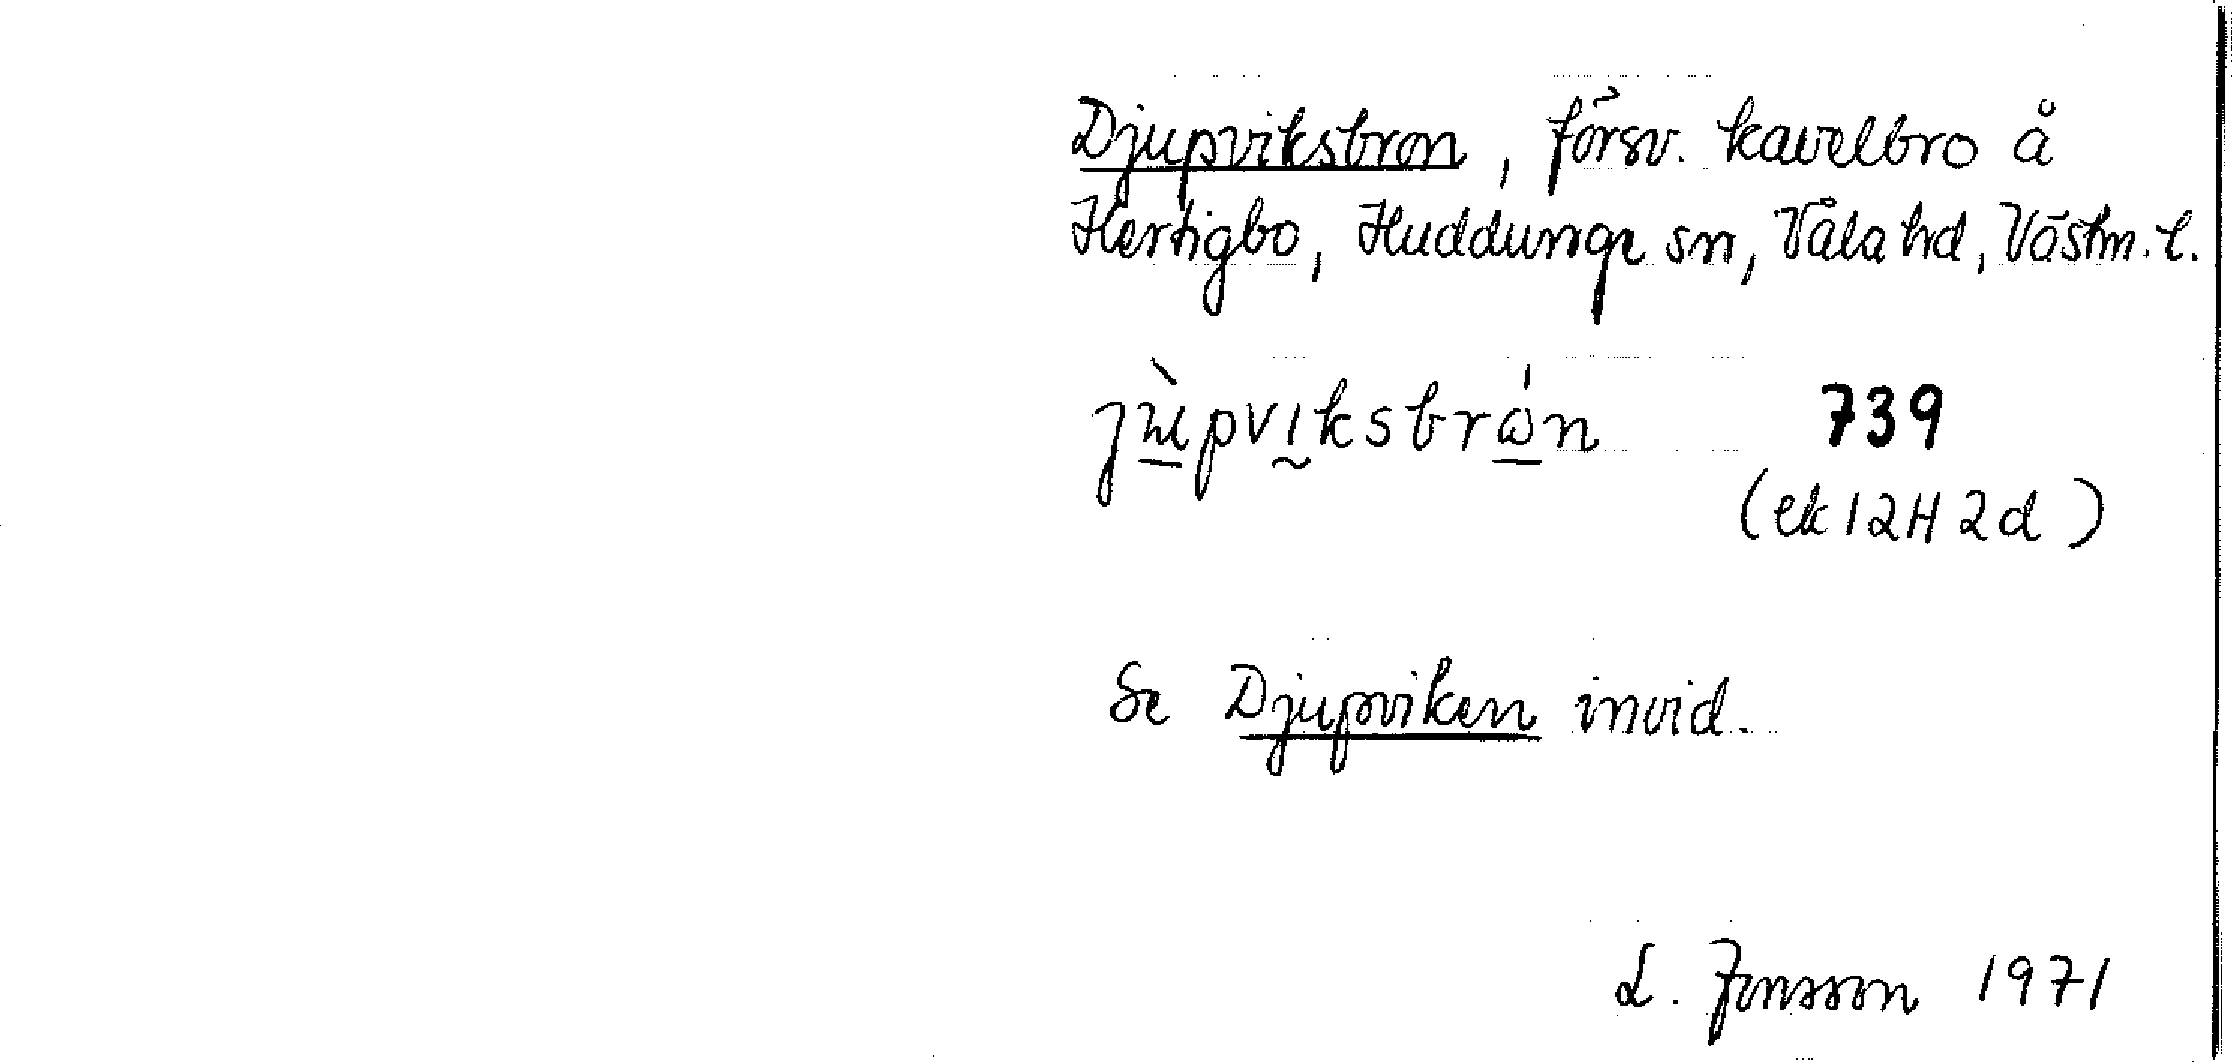 Djupviksbron, försv. kavelbro å
Hertigbo, Huddunge sn, Våla hd, Västm. l.
jùpviksbrón 739
(ek 12H 2d)
Se Djupviken invid.
L. Jonsson 1971